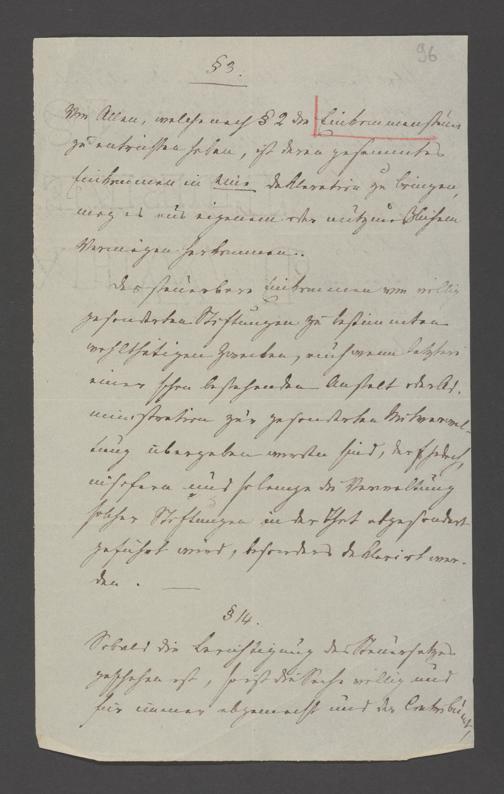 96
§ 3.
Von Allen, welche nach § 2 die Einkommensteuer
zu entrichten haben, ist deren gesammtes
Einkommen in eine Deklaration zu bringen,
mag es aus eigenem oder nutznießlichem
Vermögen herkommen.
Das steuerbare Einkommen von völlig
gesonderten Stiftungen zu bestimmten
wohlthätigen Zwecken, auch wenn letztere
einer schon bestehenden Anstalt oder Ad-
ministration zur gesonderten Mitverwal-
tung übergeben worden sind, darf jedoch,
insofern und solange die Verwaltung
solcher Stiftungen in der That abgesondert
geführt wird, besonders deklarirt wer-
den.
§ 14.
Sobald die Berichtigung des Steuersatzes
geschehen ist, so ist die Sache völlig und
für immer abgemacht und der